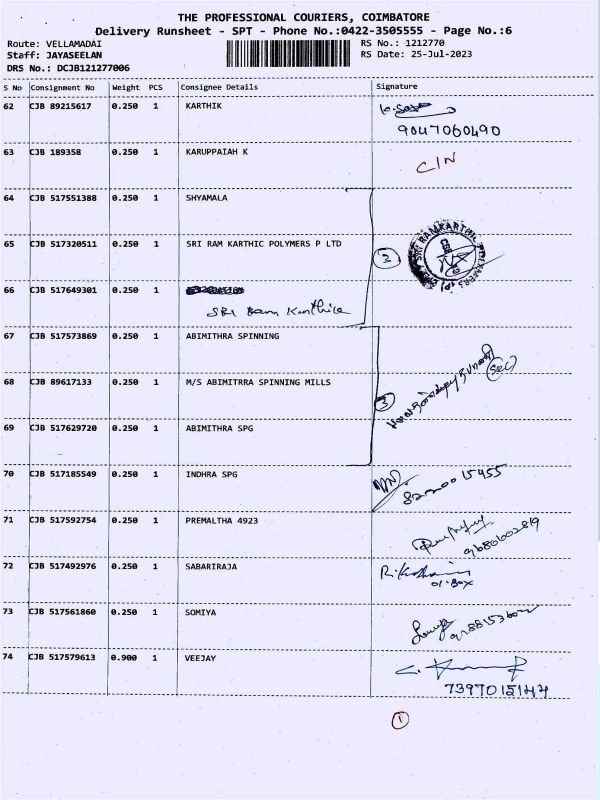 THE PROFESSIONAL COURIERS, COIMBATORE
Delivery Runsheet - SPT - Phone No.:0422-3505555 - Page No.:6
Route: VELLAMADAI RS No.: 1212770
Staff: JAYASEELAN RS Date: 25-Jul-2023
DRS No.: DCJB121277006
S No Consignment No Weight PCS Consignee Details Signature
62 CJB 89215617 0.250 1 KARTHIK
9047060490
63 CJB 189358 0.250 1 KARUPPAIAH K C/N
64 CJB 517551388 0.250 1 SHYAMALA
65 CJB 517320511 0.250 1 SRI RAM KARTHIC POLYMERS P LTD
66 CJB 517649301 0.250 1
SRI Ram Karthice
67 CJB 517573869 0.250 1 ABIMITHRA SPINNING
68 CJB 89617133 0.250 1 M/S ABIMITRRA SPINNING MILLS 3
69 CJB 517629720 0.250 1 ABIMITHRA SPG
70 CJB 517185549 0.250 1 INDHRA SPG
71 CJB 517592754 0.250 1 PREMALTHA 4923
72 CJB 517492976 0.250 1 SABARIRAJA
01-Box
73 CJB 517561860 0.250 1 SOMIYA
74 CJB 517579613 0.900 1 VEEJAY
7397015144
1